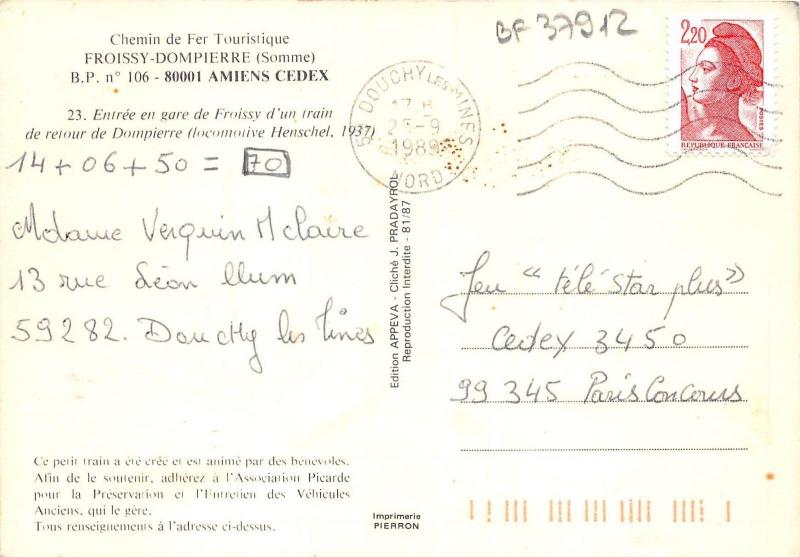 Chemin de Fer Touristique
FROISSY-DOMPIERRE (Somme)
B.P. n° 106 - 80001 AMIENS CEDEX
23. Entrée en gare de Froissy d'un train
de retour de Dompierre (locomotive Henschel, 1937)
14 + 06 + 50 = 70
Madame Verquin M claire
13 rue Léon Blum
59282. Douchy les Mines
Ce petit train a été crée et est animé par des bénévoles.
Afin de le soutenir, adhérez à l'Association Picarde
pour la Préservation et l'Entretien des Véhicules
Anciens, qui le gère.
Tous renseignements à l'adresse ci-dessus.
Edition APPEVA - Cliché J. PRADAYROL
Reproduction Interdite - 81/87
Imprimerie
PIERRON
BF 37912
59 DOUCHY LES MINES
17 H
25-9
1989
NORD
2,20
POSTES
RÉPUBLIQUE FRANÇAISE
Jeu "télé star plus"
Cedex 3450
99 345 Paris Concours